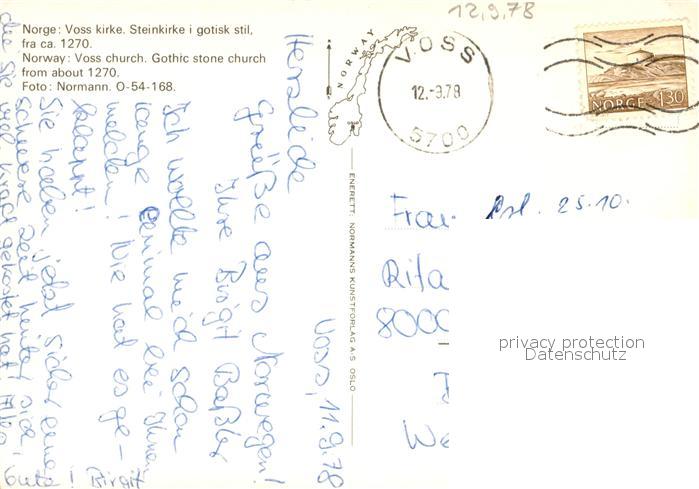 Norge: Voss kirke. Steinkirke i gotisk stil,
fra ca. 1270.
Norway: Voss church. Gothic stone church
from about 1270.
Foto: Normann. O-54-168.
12.9.78
NORWAY
OSLO
VOSS
12.-9.78
5700
NORGE 130
ENERETT: NORMANNS KUNSTFORLAG A-S OSLO
Voss, 11.9.78
Herzliche
Grüße aus Norwegen!
Ihre Birgit
Ich wollte mich schon
lange einmal bei Ihnen
melden! Wie hat es ge-
klappt!
Sie haben jetzt sicher eine
schwere Zeit hinter sich
die Sie viel Kraft gekostet hat! Alles
Gute! Birgit
Frau
25.10.
Rita
8000
We
privacy protection
Datenschutz